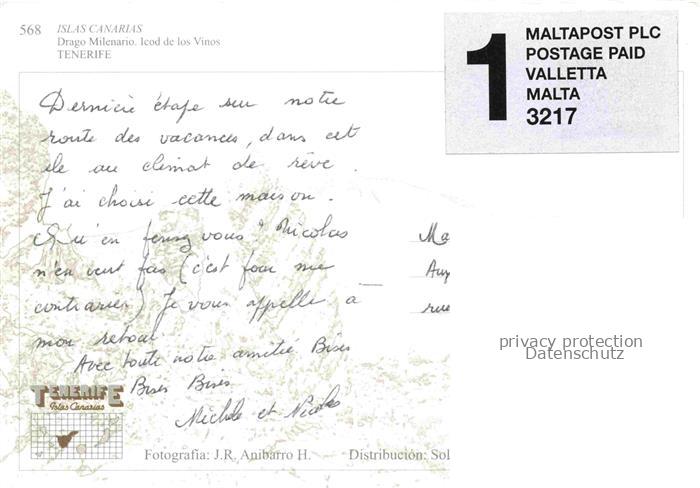 568 ISLAS CANARIAS
Drago Milenario. Icod de los Vinos
TENERIFE
1
MALTAPOST PLC
POSTAGE PAID
VALLETTA
MALTA
3217
Dernière étape sur notre
route des vacances, dans cet
île au climat de rêve.
J'ai choisi cette maison.
Qu'en pensez vous? Nicolas
n'en veut pas (c'est pour me
contrarier) Je vous appelle à
mon retour
Avec toute notre amitié Bises
Bises Bises
Michèle et Nicolas
Ma
rue
privacy protection
Datenschutz
TENERIFE
Islas Canarias
Fotografía: J.R. Anibarro H. Distribución: Sol